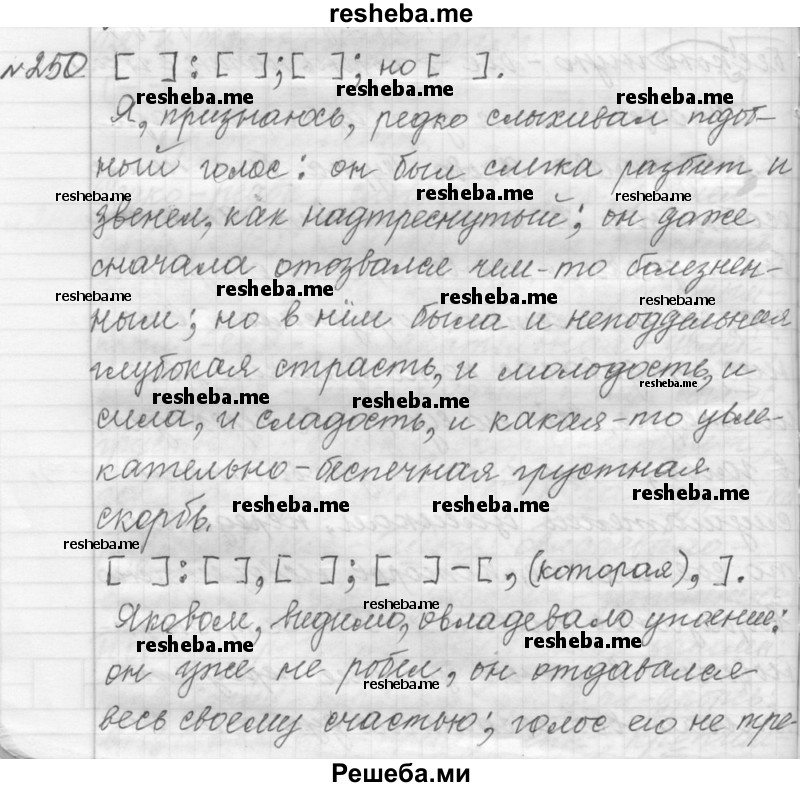 resheba.me
№250 [ ] : [ ] ; [ ] ; но [ ] .
resheba.me resheba.me resheba.me
Я, признаюсь, редко слыхивал подоб-
ный голос: он был слегка разбит и
resheba.me resheba.me resheba.me
звенел, как надтреснутый; он даже
сначала отозвался чем-то болезнен-
resheba.me resheba.me resheba.me resheba.me
ным; но в нём была и неподдельная
глубокая страсть, и молодость, и
resheba.me resheba.me resheba.me
сила, и сладость, и какая-то увле-
кательно-беспечная грустная
resheba.me resheba.me resheba.me
скорбь.
resheba.me
[ ] : [ ] , [ ] ; [ ] - [ , (которая), ] .
resheba.me
Яковом, видимо, овладевало упоение:
resheba.me resheba.me
он уже не робел, он отдавался
resheba.me
весь своему счастью; голос его не тре-
Решеба.ми